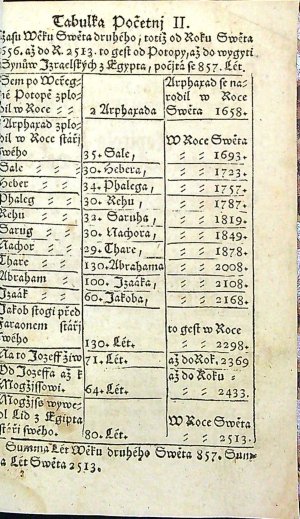 Tabulka Početnj II.
Času Wěku Swěta druhého, totiž od Roku Swěta
1656. až do R. 2513. to gest od Potopy, až do wygytj
Synůw Jzraelských z Egypta, počjtá se 857. Lét.
Sem po Wěřeg-
né Potopě zplo-
dil w Roce 2 Arphaxada
Arphaxad se na-
rodil w Roce
Swěta 1658.
Arphaxad zplo-
dil w Roce stářj
swého 35. Sale, W Roce Swěta 1693.
Sale 30. Hebera, 1723.
Heber 34. Phalega, 1757.
Phaleg 30. Rehu, 1787.
Rehu 32. Saruha, 1819.
Sarug 30. Nachora, 1849.
Nachor 29. Thare, 1878.
Thare 130. Abrahama 2008.
Abraham 100. Jzaáka, 2108.
Jzaák 60. Jakoba, 2168.
Jakob stogj před
Faraonem stářj
swého 130. Lét. to gest w Roce 2298.
Na to Jozeff žiw 71. Lét. až do Rok. 2369
Od Jozeffa až k
Mogžjssowi. 64. Lét. až do Roku 2433.
Mogžjss wywe-
dl Lid z Egipta
stářj swého. 80. Lét. W Roce Swěta 2513.
Summa Lét Wěku druhého Swěta 857. Sum-
ma Lét Swěta 2513.